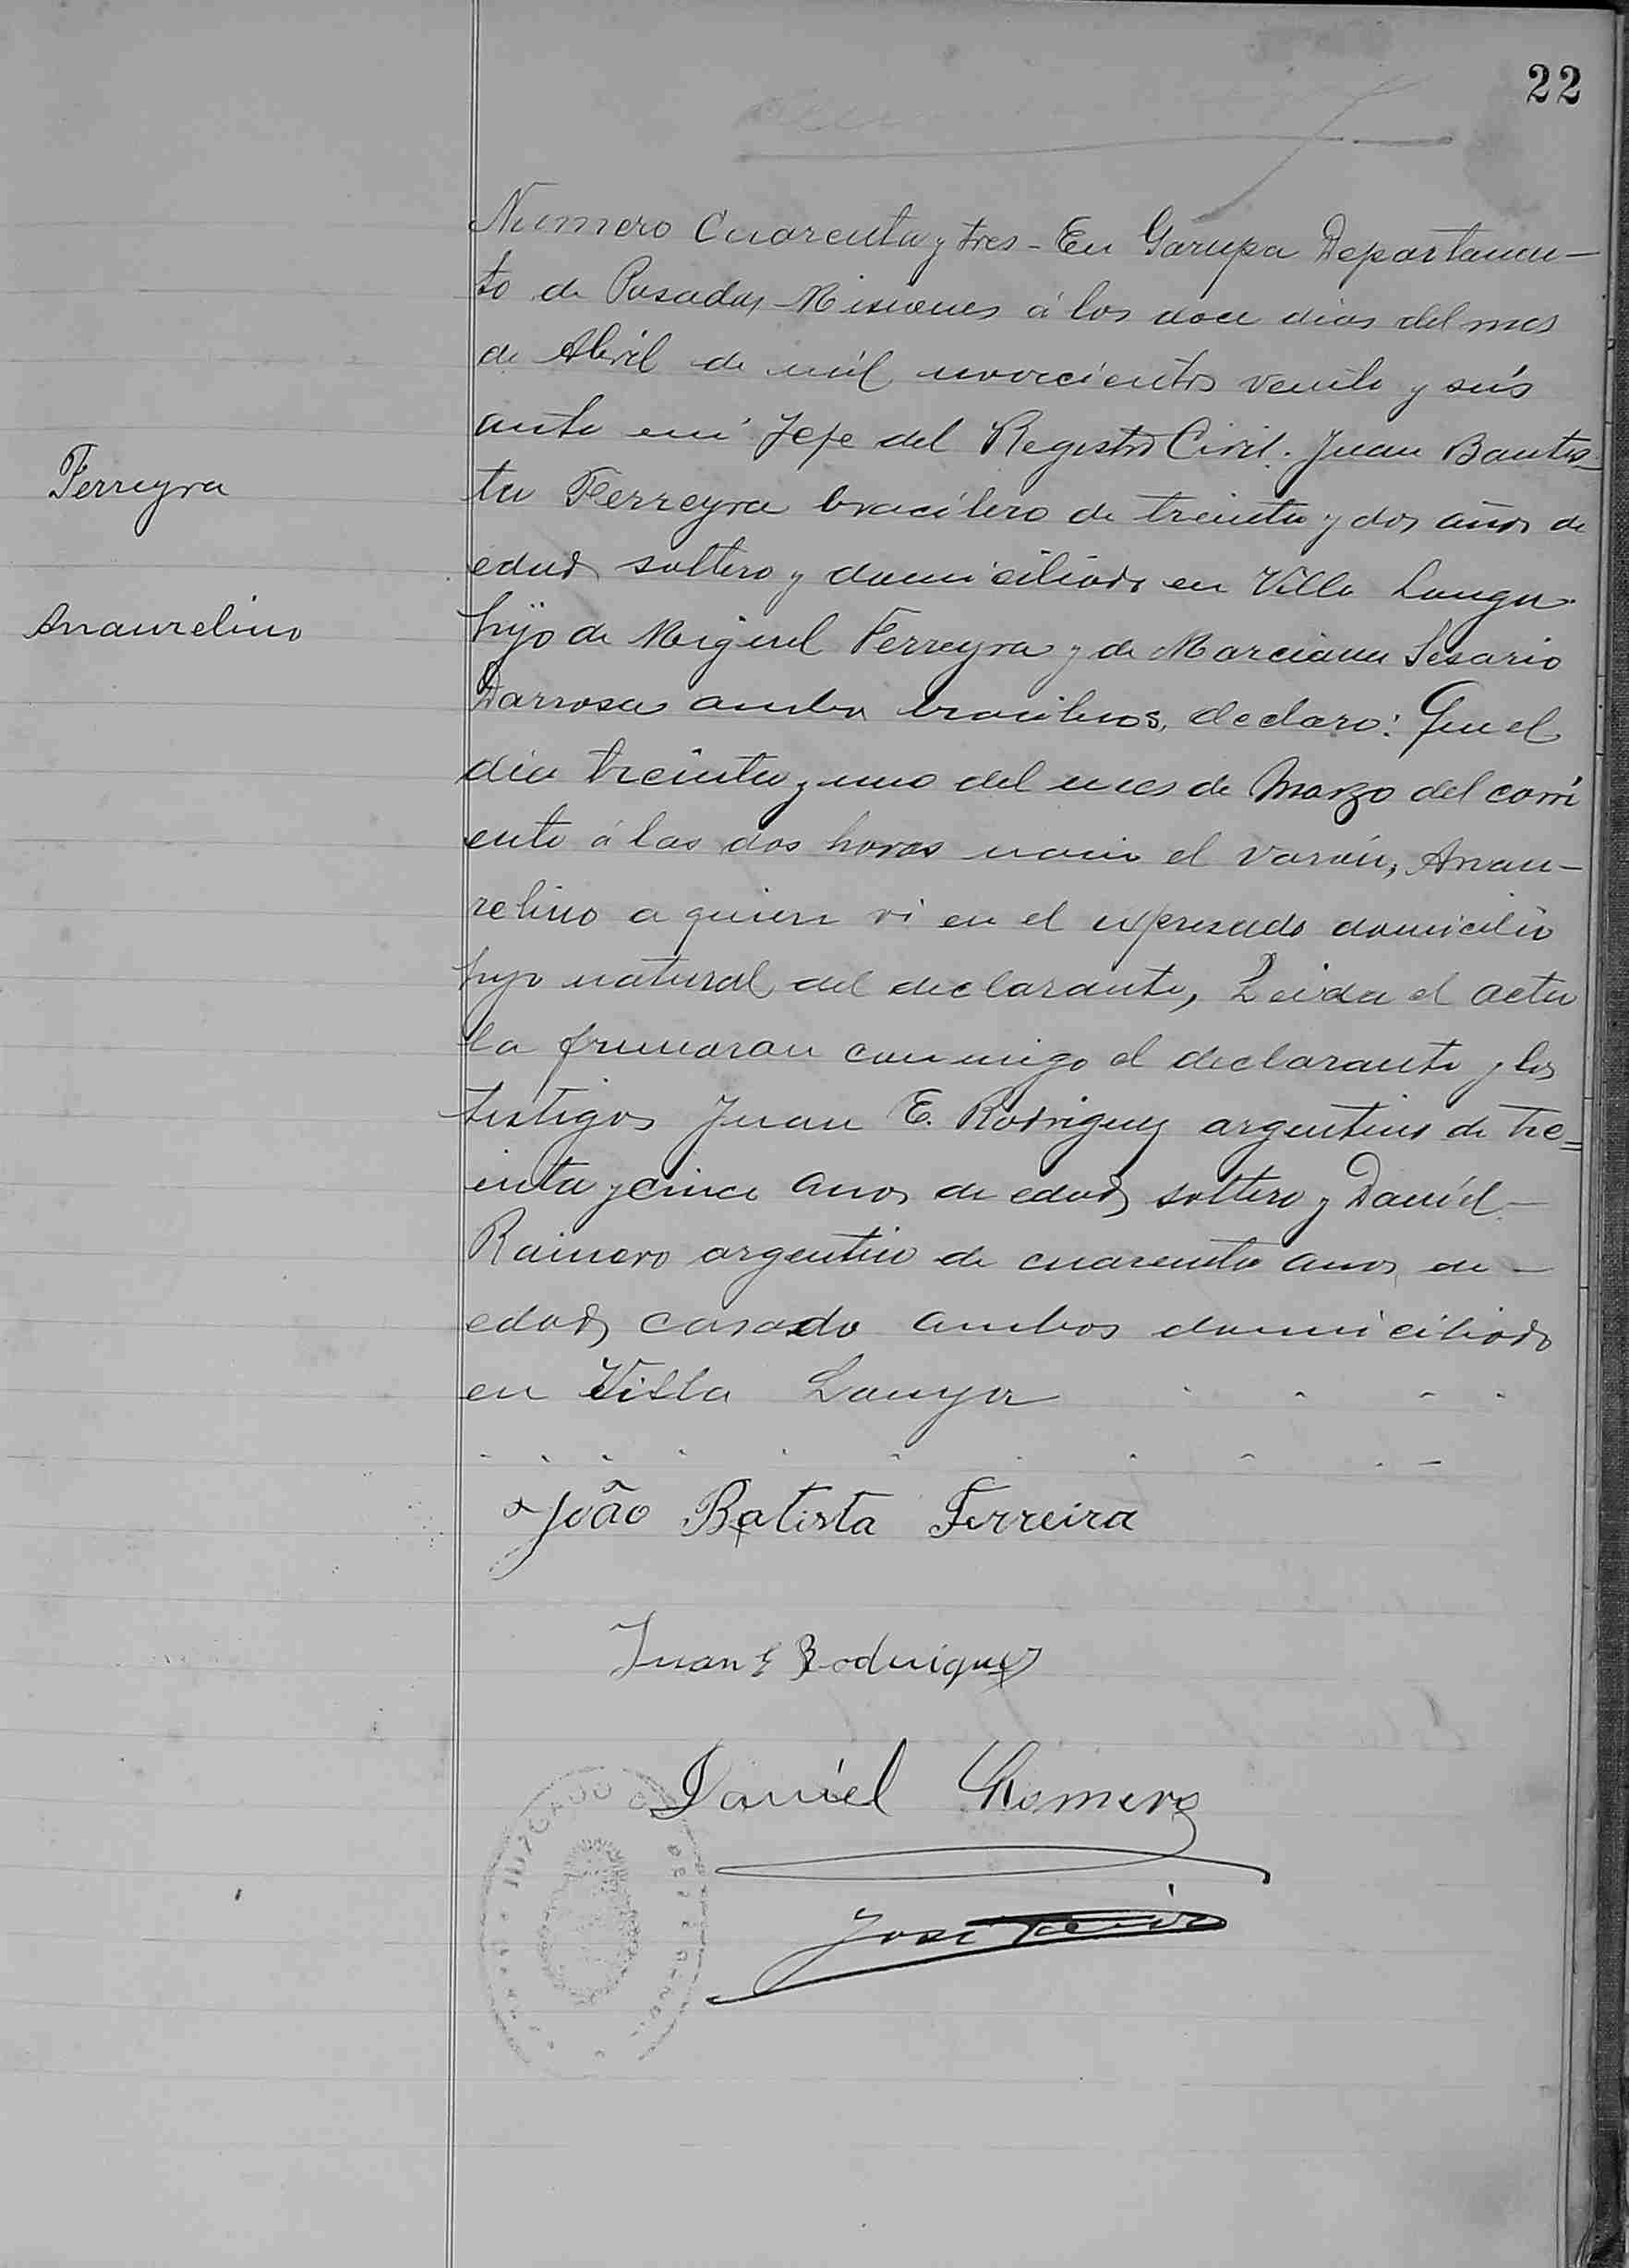 22
Numero Cuarenta y tres - En Garupa Departamen-
to de Posadas, Misiones á los doce dias del mes
de Abril de mil novecientos veinte y seis
ante mi Jefe del Registro Civil. Juan Bautis-
ta Ferreyra bracilero de treinta y dos años de
edad soltero y domiciliado en Villa Lanya
hijo de Miguel Ferreyra y de Marciana Sesario
Darrosa ambos bracileros, declaro: Que el
dia treinta y uno del mes de Marzo del corri
ente á las dos horas nacio el varón, Anau-
relino a quien vi en el expresado domicilio
hijo natural del declarante, Leida el acta
la firmaran conmigo el declarante y los
testigos Juan E. Rodriguez argentino de tre=
inta y cinco anos de edad soltero y Daniel
Rainero argentino de cuarenta anos de -
edad casado ambos domiciliado
en Villa Lanya
Ferreyra
Anaurelino
João Batista Ferreira
Juan E Rodriguez
Daniel Romero
José
JUZGADO